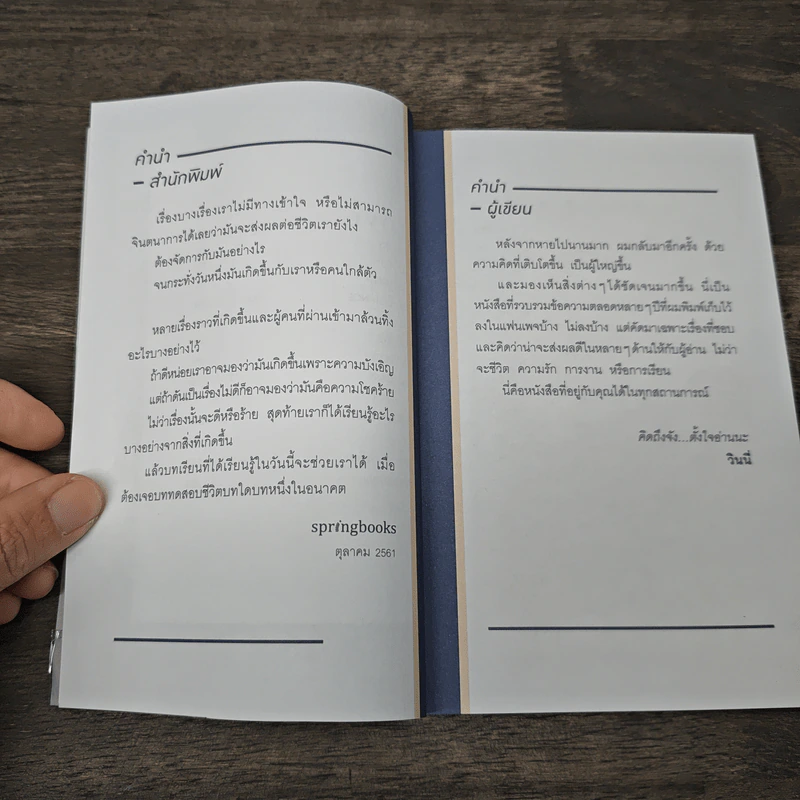 คำนำ
– สำนักพิมพ์
เรื่องบางเรื่องเราไม่มีทางเข้าใจ หรือไม่สามารถ
จินตนาการได้เลยว่ามันจะส่งผลต่อชีวิตเรายังไง
ต้องจัดการกับมันอย่างไร
จนกระทั่งวันหนึ่งมันเกิดขึ้นกับเราหรือคนใกล้ตัว
หลายเรื่องราวที่เกิดขึ้นและผู้คนที่ผ่านเข้ามาล้วนทิ้ง
อะไรบางอย่างไว้
ถ้าดีหน่อยเราอาจมองว่ามันเกิดขึ้นเพราะความบังเอิญ
แต่ถ้าดันเป็นเรื่องไม่ดีก็อาจมองว่ามันคือความโชคร้าย
ไม่ว่าเรื่องนั้นจะดีหรือร้าย สุดท้ายเราก็ได้เรียนรู้อะไร
บางอย่างจากสิ่งที่เกิดขึ้น
แล้วบทเรียนที่ได้เรียนรู้ในวันนี้จะช่วยเราได้ เมื่อ
ต้องเจอบททดสอบชีวิตบทใดบทหนึ่งในอนาคต
springbooks
ตุลาคม 2561
คำนำ
– ผู้เขียน
หลังจากหายไปนานมาก ผมกลับมาอีกครั้ง ด้วย
ความคิดที่เติบโตขึ้น เป็นผู้ใหญ่ขึ้น
และมองเห็นสิ่งต่างๆได้ชัดเจนมากขึ้น นี่เป็น
หนังสือที่รวบรวมข้อความตลอดหลายๆปีที่ผมพิมพ์เก็บไว้
ลงในแฟนเพจบ้าง ไม่ลงบ้าง แต่คัดมาเฉพาะเรื่องที่ชอบ
และคิดว่าน่าจะส่งผลดีในหลายๆด้านให้กับผู้อ่าน ไม่ว่า
จะชีวิต ความรัก การงาน หรือการเรียน
นี่คือหนังสือที่อยู่กับคุณได้ในทุกสถานการณ์
คิดถึงจัง...ตั้งใจอ่านนะ
วินนี่